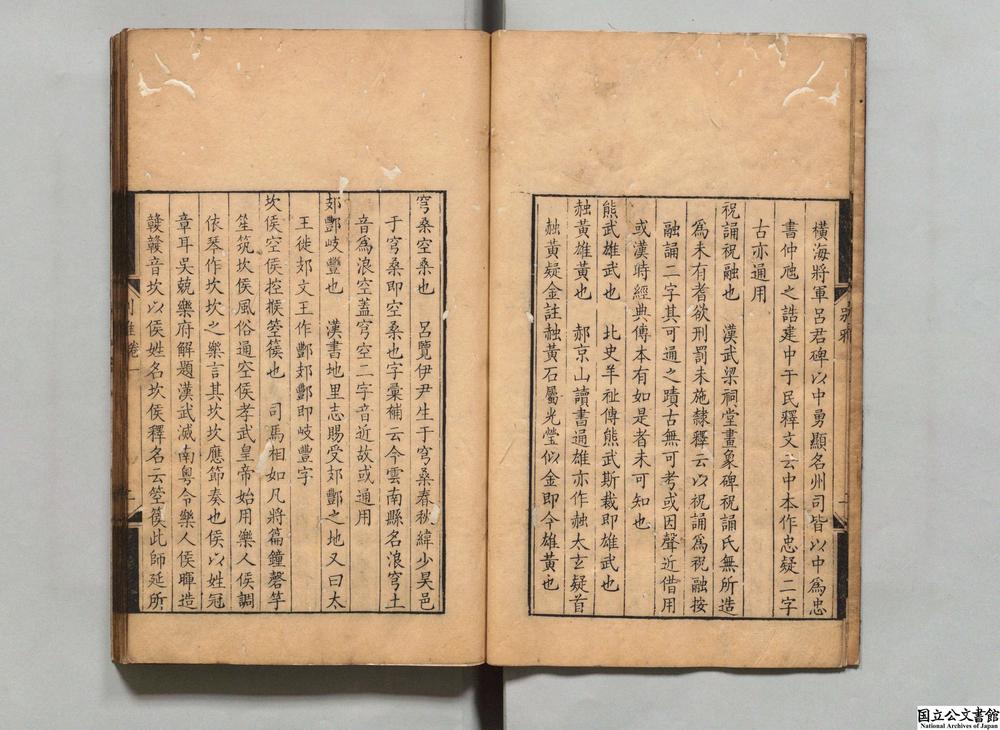 橫海將軍呂君碑以中勇顯名州司皆以中爲忠
書仲虺之誥建中于民釋文云中本作忠疑二字
古亦通用
祝誦祝融也　漢武梁祠堂畫象碑祝誦氏無所造
爲未有耆欲刑罰未施隸釋云以祝誦爲祝融按
融誦二字其可通之蹟古無可考或因聲近借用
或漢時經典傳本有如是者未可知也
熊武雄武也　北史羊祉傳熊武斯裁即雄武也
䧺黃雄黃也　郝京山讀書通雄亦作䧺太玄疑首
䧺黃疑金註䧺黃石屬光瑩似金即今雄黃也
別雅
穹桑空桑也　呂覽伊尹生于穹桑春秋緯少昊邑
于穹桑即空桑也字彙補云今雲南縣名浪穹土
音爲浪空蓋穹空二字音近故或通用
郊酆岐豐也　漢書地里志賜受郊酆之地又曰太
王徙郊文王作酆郊酆即岐豐字
坎侯空侯控揍箜篌也　司馬相如凡將篇鐘磬竽
笙筑坎侯風俗通空侯孝武皇帝始用樂人侯調
依琴作坎坎之樂言其坎坎應節奏也侯以姓冠
章耳吳兢樂府解題漢武滅南粵令樂人侯暉造
贛贛音坎以侯姓名坎侯釋名云箜篌此師延所
別雅卷一
二
国立公文書館
National Archives of Japan